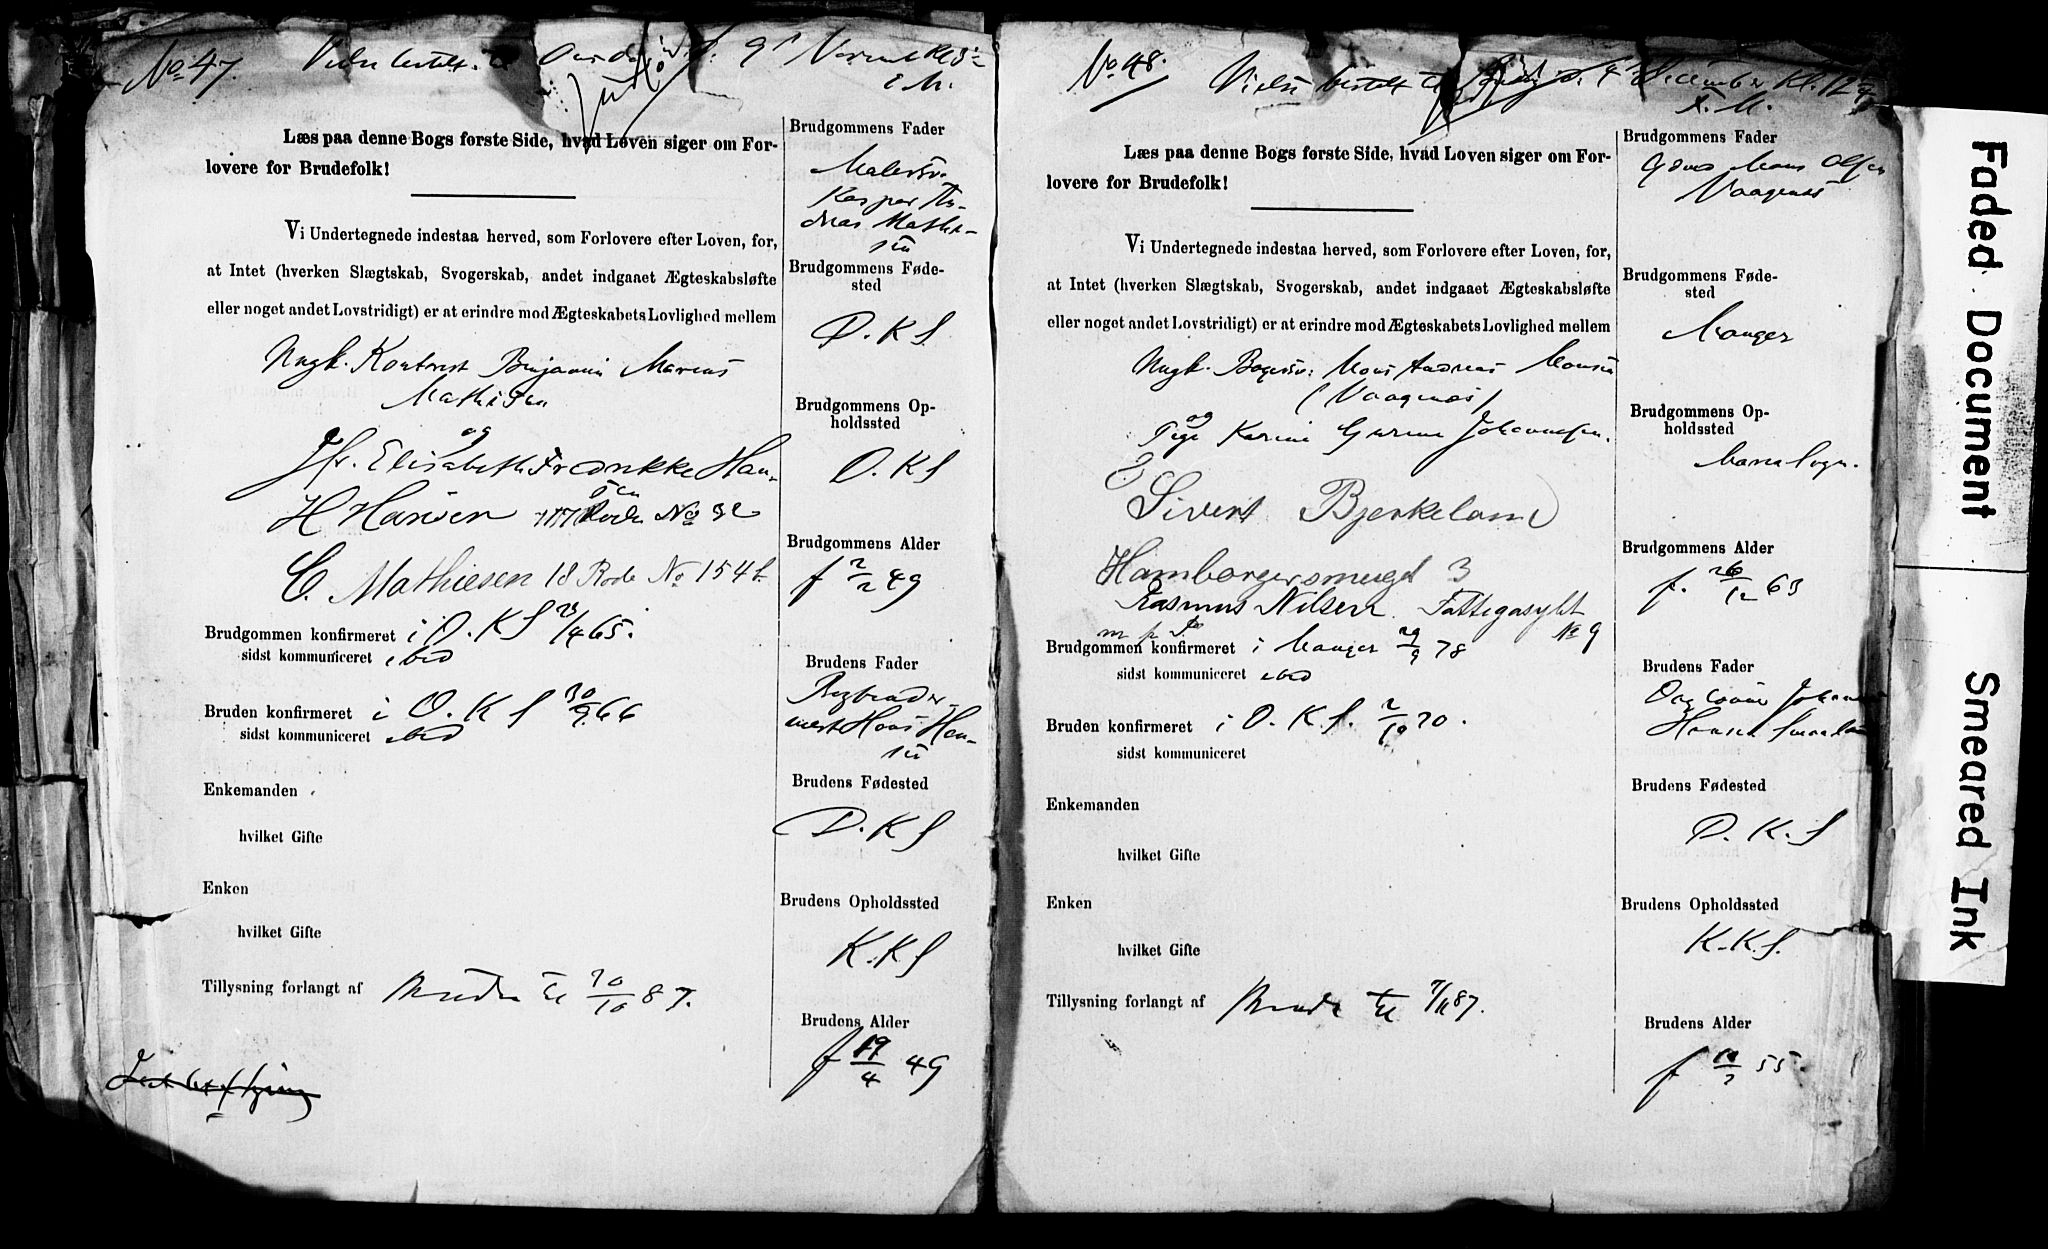 No 47.
Vielse bestilt til Onsdag d. 9' Novemb. Kl.
E.M.
Læs paa denne Bogs første Side, hvad Loven siger om For-
lovere for Brudefolk!
Vi Undertegnede indestaa herved, som Forlovere efter Loven, for,
at Intet (hverken Slægtskab, Svogerskab, andet indgaaet Ægteskabsløfte
eller noget andet Lovstridigt) er at erindre mod Ægteskabets Lovlighed mellem
Ungk. Kontorist Benjamin Marius
Mathisen
og
Jfr. Elisabeth Fredrikke Han-
sen
H Hansen 17 Rode No 32
C. Mathiesen 18 Rode No 154 b
Brudgommen konfirmeret i D. K S 23/4 65.
sidst kommuniceret ibid
Bruden konfirmeret i D. K S 30/9 66
sidst kommuniceret ibid
Enkemanden
hvilket Gifte
Enken
hvilket Gifte
Tillysning forlangt af Bruden til 20/10 87.
Brudgommens Fader
Malersv.
Kasper An-
dreas Mathi-
sen
BrudgommensFøde-
sted
D. K S.
Brudgommens Op-
holdssted
D. K S
Brudgommens Alder
f 2/2 49
Brudens Fader
Hans Han-
sen
Brudens Fødested
D. K S
Brudens Opholdssted
K. K S
Brudens Alder
f 19/4 49
No 48.
Vielse bestilt til Søndag d. 4' December Kl. 12
F. M.
Læs paa denne Bogs første Side, hvad Loven siger om For-
lovere for Brudefolk!
Vi Undertegnede indestaa herved, som Forlovere efter Loven, for,
at Intet (hverken Slægtskab, Svogerskab, andet indgaaet Ægteskabsløfte
eller noget andet Lovstridigt) er at erindre mod Ægteskabets Lovlighed mellem
Ungk. Bagersv. Mons Andreas Monsen
(Vaagenæs)
og
Pige Karine Gurine Johannesen.
Sivert Bjerkeland
Hamborgersmuget 3
Rasmus Nilsen Fattegasylet
No 9
m p P
Brudgommen konfirmeret i Manger 29/9 78
sidst kommuniceret ibid
Bruden konfirmeret i D. K. S. 2/10 70.
sidst kommuniceret
Enkemanden
hvilket Gifte
Enken
hvilket Gifte
Tillysning forlangt af Bruden til 7/11 87.
Brudgommens Fader
Gdmd Mons Olsen
Vaagenæs
Brudgommens Føde-
sted
Manger
Brudgommens Op-
holdssted
Maria Sogn.
Brudgommens Alder
f. 26/12 63
Brudens Fader
Johannes
Hansen
Brudens Fødested
D. K. S
Brudens Opholdssted
K. K. S.
Brudens Alder
f 55.
Faded Document
Smeared Ink